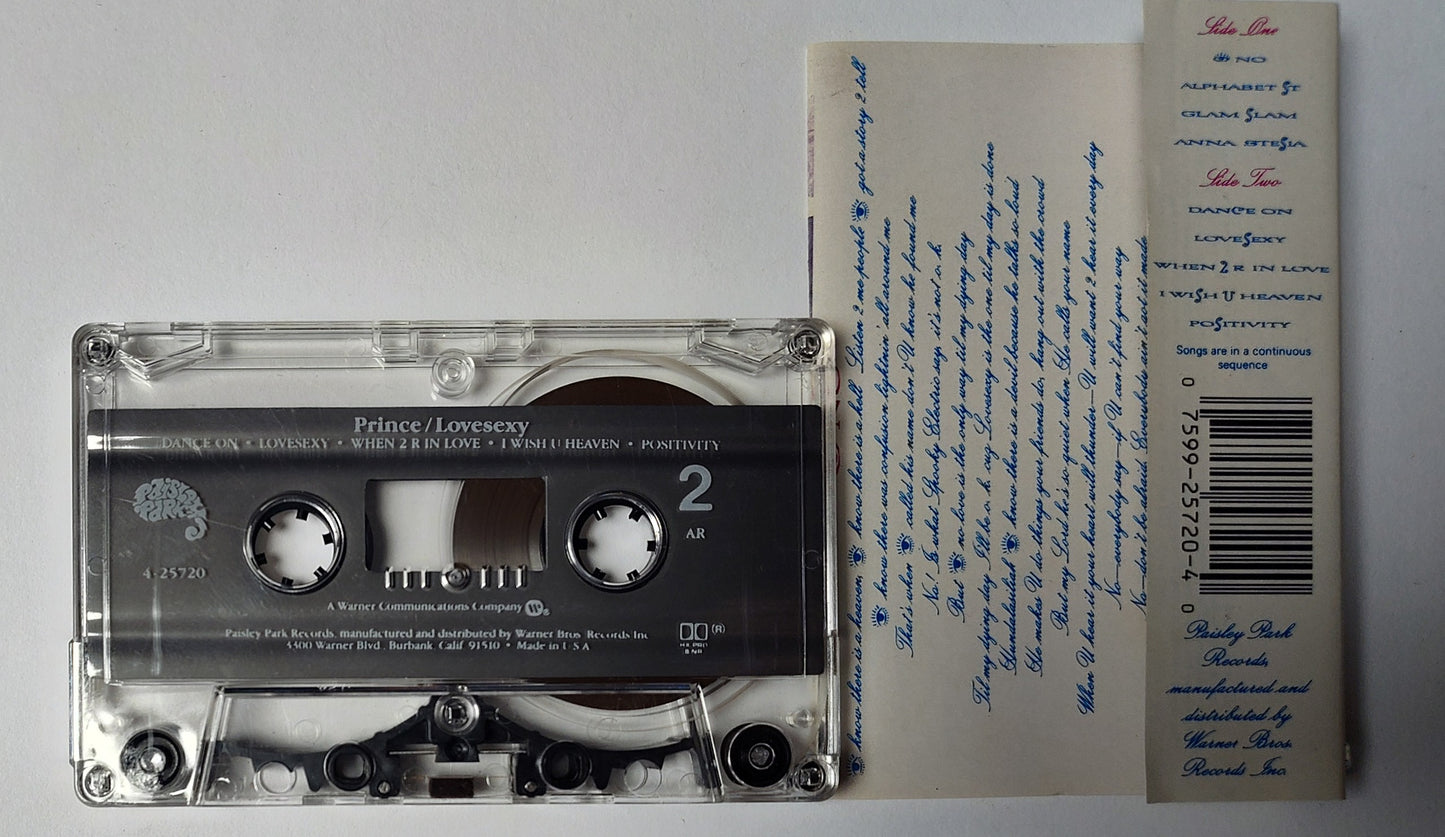 Prince/Lovesexy
DANCE ON • LOVESEXY • WHEN 2 R IN LOVE • I WISH U HEAVEN • POSITIVITY
PAISLEY PARK
2
AR
4-25720
A Warner Communications Company
Paisley Park Records, manufactured and distributed by Warner Bros. Records Inc.
3300 Warner Blvd., Burbank, Calif. 91510 • Made in U.S.A.
(R)
HX PRO
B NR
👁 know there is a heaven, 👁 know there is a hell. Listen 2 me people 👁 got a story 2 tell
👁 know there was confusion, lightnin' all around me
That is when 👁 called his name don't U know he found me
No! Is what Spooky Electric say, it's not o.k.
But 👁 no love is the only way til my dying day
Til my dying day I'll be o.k. cuz Lovesexy is the one til my day is done
Hundalasiliah 👁 know there is a devil because he talks so loud
He makes U do things your friends do, hang out with the crowd
But my Lord he's so quiet when He calls your name
When U hear it your heart will thunder—U will want 2 hear it every day
No—everybody say—if U can't find your way
No—don't be afraid. Everybody ain't got it made
Side One
👁 NO
ALPHABET ST
GLAM SLAM
ANNA STESIA
Side Two
DANCE ON
LOVESEXY
WHEN 2 R IN LOVE
I WISH U HEAVEN
POSITIVITY
Songs are in a continuous
sequence
0 7599-25720-4 0
Paisley Park
Records,
manufactured and
distributed by
Warner Bros.
Records Inc.